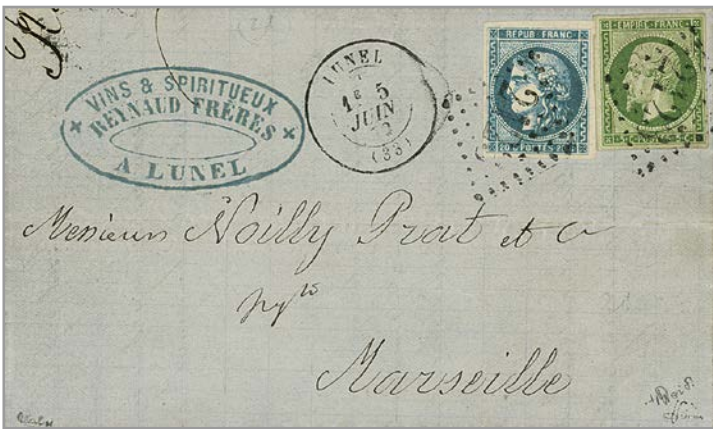 VINS & SPIRITUEUX
REYNAUD FRÈRES
A LUNEL
LUNEL
1e 5
JUIN
(33)
REPUB FRANC
20 POSTES 20
EMPIRE FRANC
Messieurs Noilly Prat et Cie
Marseille